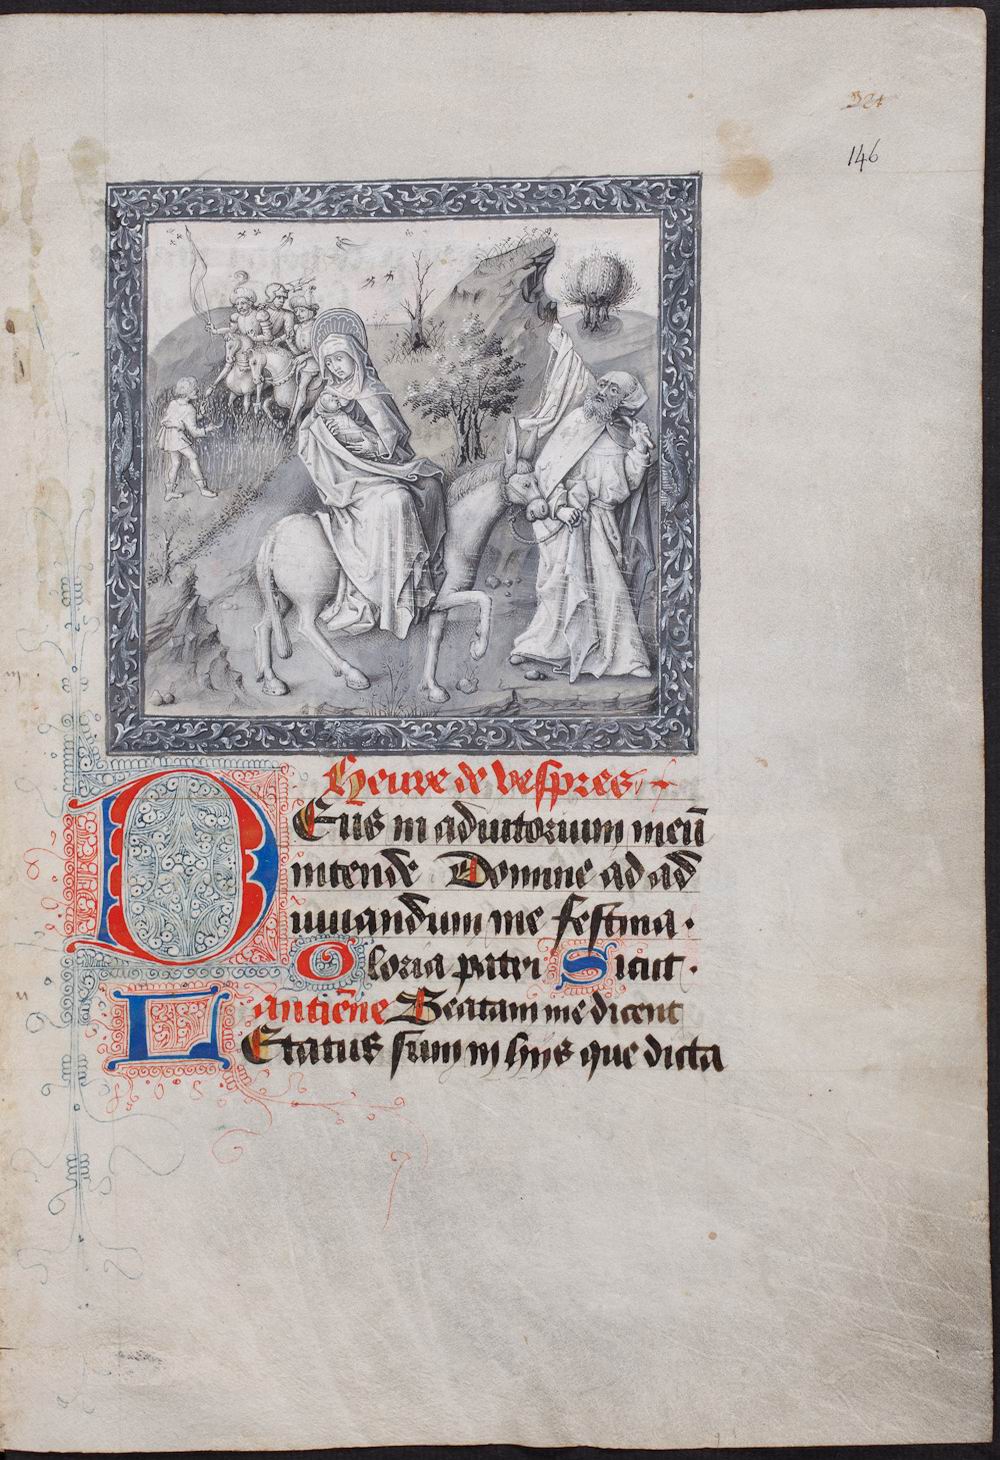 146
Heure de vespres
DEus in adiutorium meū
intende Domine ad ad
iuuandum me festina.
Gloria patri Sicut.
antiēne Beatam me dicent
LEtatus sum in hijs que dicta